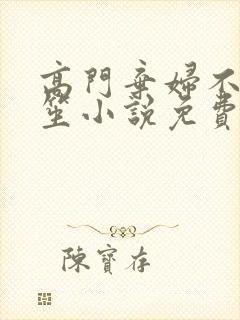 高門棄婦不
笙小說免費
陳寶存